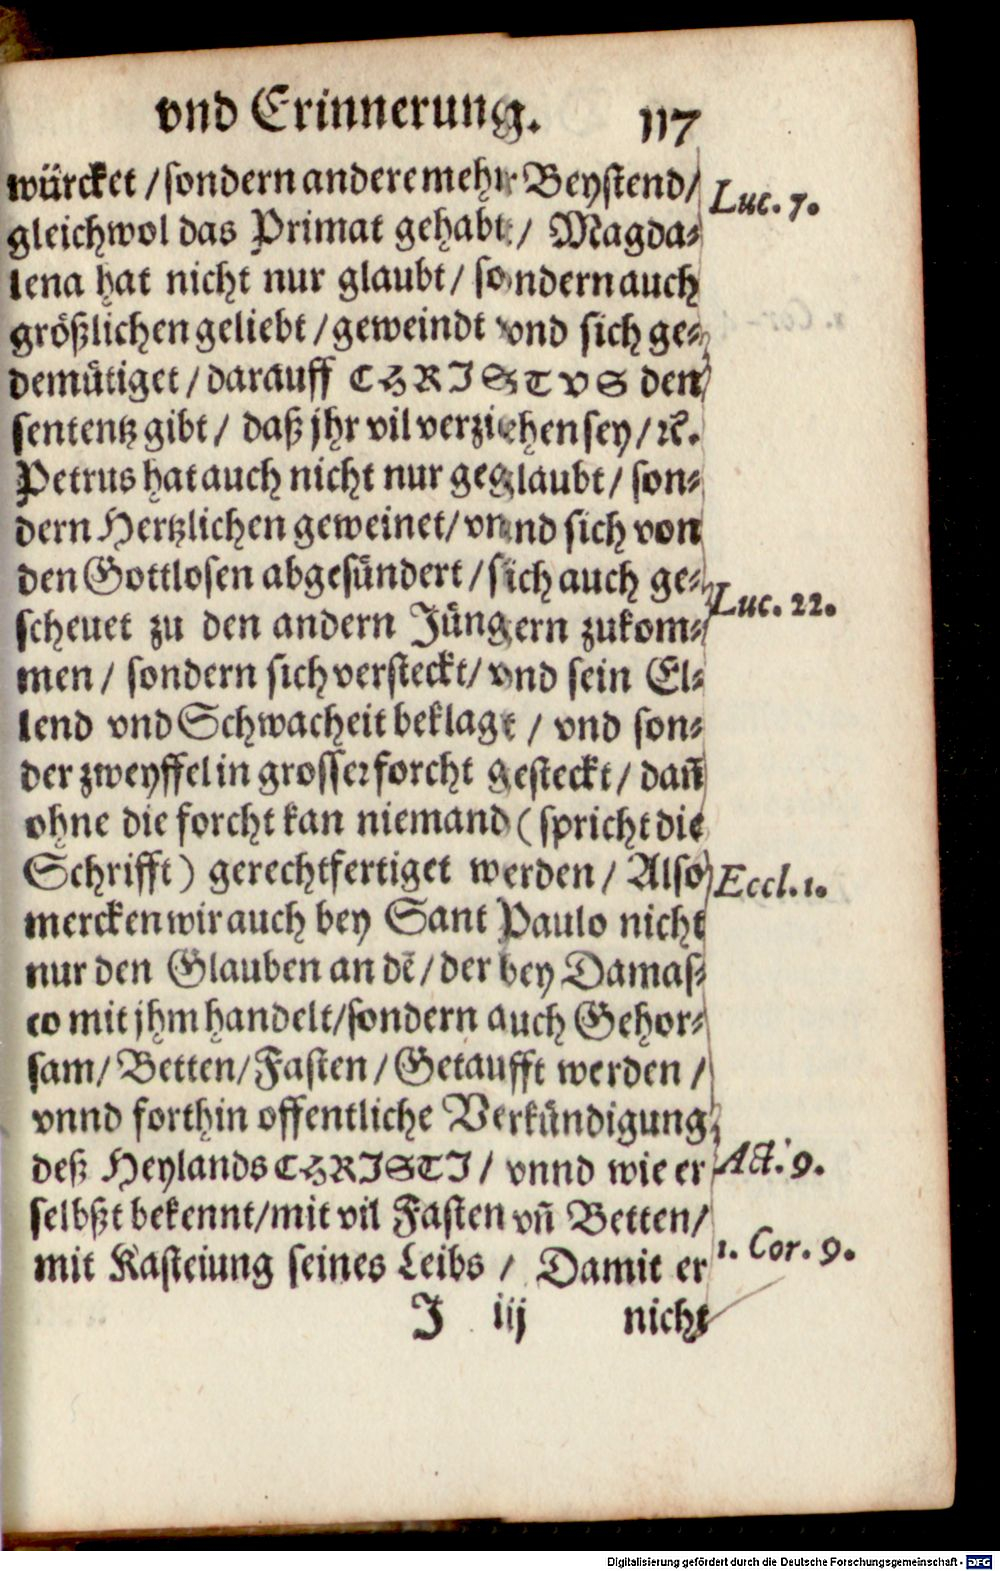 vnd Erinnerung. 117
würcket / sondern andere mehr Beystend /
Luc. 7.
gleichwol das Primat gehabt / Magda-
lena hat nicht nur glaubt / sondern auch
größlichen geliebt / geweindt vnd sich ge-
demütiget / darauff CHRISTVS den
sententz gibt / daß jhr vil verziehen sey / ꝛc.
Petrus hat auch nicht nur geglaubt / son-
dern Hertzlichen geweinet / vnnd sich von
den Gottlosen abgesündert / sich auch ge-
Luc. 22.
scheuet zu den andern Jüngern zukom-
men / sondern sich versteckt / vnd sein El-
lend vnd Schwacheit beklagt / vnd son-
der zweyffel in grosser forcht gesteckt / dañ
ohne die forcht kan niemand (spricht die
Schrifft) gerechtfertiget werden / Also
Eccl. 1.
mercken wir auch bey Sant Paulo nicht
nur den Glauben an dē / der bey Damas-
co mit jhm handelt / sondern auch Gehor-
sam / Betten / Fasten / Getaufft werden /
vnnd forthin offentliche Verkündigung
deß Heylands CHRISTI / vnnd wie er
Act. 9.
selbßt bekennt / mit vil Fasten vñ Betten /
mit Kasteiung seines Leibs / Damit er
1. Cor. 9.
J iij nicht
Digitalisierung gefördert durch die Deutsche Forschungsgemeinschaft - DFG